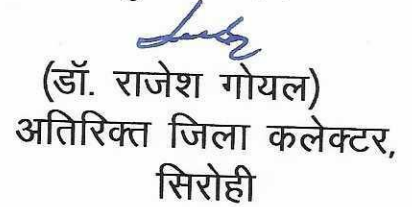 (डॉ. राजेश गोयल)
अतिरिक्त जिला कलेक्टर,
सिरोही